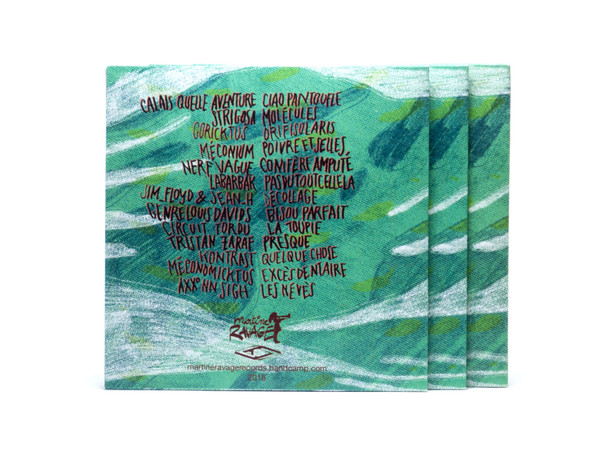 CALAIS QUELLE AVENTURE CIAO PANTOUFLE
STRIGOSA MOLÉCULES
GORICKTUS ORIFISOLARIS
MÉCONIUM POIVRE ET SELLES
NERF VAGUE CONIFÈRE AMPUTÉ
LABARBAK PAS DU TOUT CELLE LA
JIM_FLOYD & JEAN-H DÉCOLLAGE
GENRE LOUIS DAVIDS BISOU PARFAIT
CIRCUIT TORDU LA TOUPIE
TRISTAN ZARAF PRESQUE
KONTRAST QUELQUE CHOSE
MÉCONOMICKTUS EXCÈS DENTAIRE
AXXONN SIGH LES NÈVES
martine
RAVAGE
martineravagerecords.bandcamp.com
2018